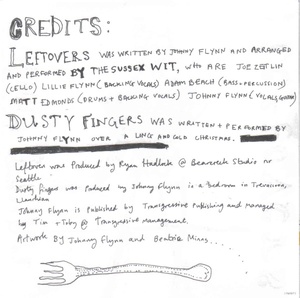 CREDITS:
LEFTOVERS WAS WRITTEN BY JOHNNY FLYNN AND ARRANGED
AND PERFORMED BY THE SUSSEX WIT, WHO ARE JOE ZEITLIN
(CELLO) LILLIE FLYNN (BACKING VOCALS) ADAM BEACH (BASS + PERCUSSION)
MATT EDMONDS (DRUMS + BACKING VOCALS) JOHNNY FLYNN (VOCALS, GUITAR)
DUSTY FINGERS WAS WRITTEN + PERFORMED BY
JOHNNY FLYNN OVER A LONG AND COLD CHRISTMAS.
Leftovers was Produced by Ryan Hadlock @ Bearcreek Studio nr
Seattle
Dusty Fingers was Produced by Johnny Flynn in a Bedroom in
Johnny Flynn is Published by Transgressive Publishing and Managed
by Tim + Toby @ Transgressive Management.
Artwork By Johnny Flynn and Beatrix